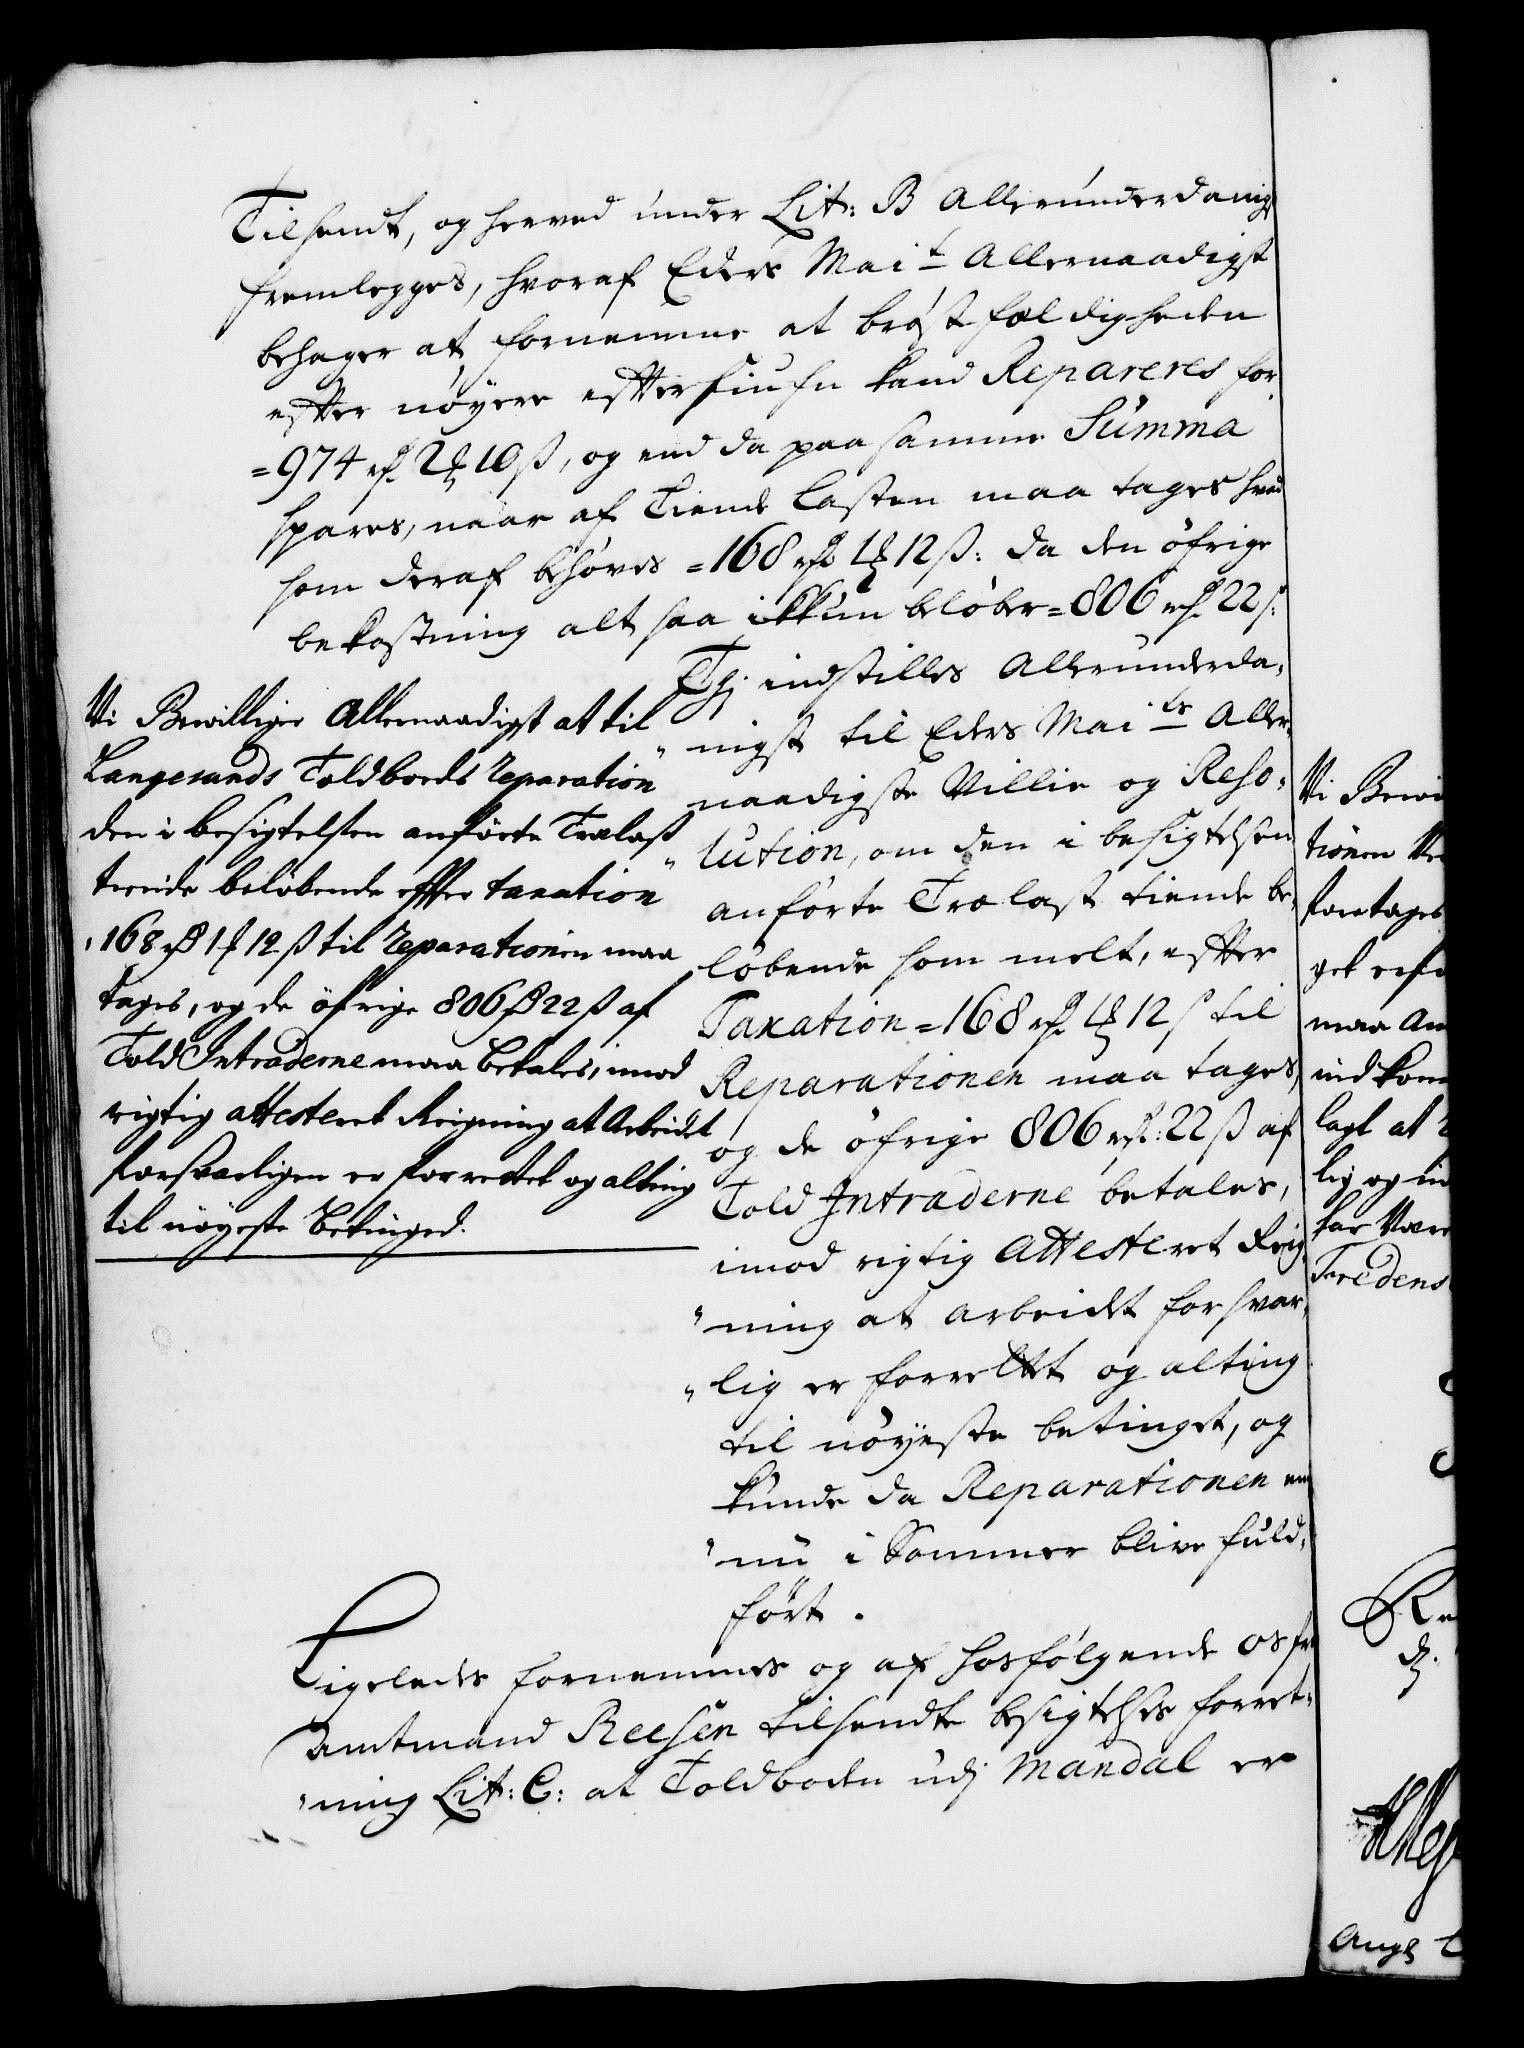 Tilsendt, og herved under Lit: B Allerunderdanigst
fremlegges, hvoraf Eders Mait Allernaadigst
behager at fornemme at bröstfældigheden
efter nöyere eftersiufn kand Repareres for
=974 rd. 2 ℔ 10 ß, og end da paa samme Summa
spares, naar af Tiende lasten maa tages hvad
som deraf behöves =168 rd 1 ℔ 12 ß: da den öfrige
bekostning alt saa ikkun belöber =806 rd. 22 ß.
Thj indstilles Allerunderda-
nigst til Eders Maits Aller-
naadigste Villie og Reso-
lution, om den i besigtelsen
anförte Trælast tiende be-
löbende som melt, efter
Taxation =168 rd. 1 ℔ 12 ß til
Reparationen maa tages,
og de öfrige 806 rd: 22 ß af
Told Intraderne betales,
imod rigtig Attesteret Reig-
ning at arbeidet forsvar-
lig er forrettet og alting
til nöyeste betinget, og
kunde da Reparationen en
nu i Sommer blive fuld-
fört.
Vi Bewilliger Allernaadigst at til
Langesunds Toldboeds reparation
den i besigtelsen anförte Trælast
tiende belöbende effter taxation
168 rd 1 ℔ 12 ß til reparationen maa
tages, og de öfrige 806 rd 22 ß af
Told Intraderne maa betales, imod
rigtig attesteret Reigning at Arbeidet
forsvarligen er forrettet og alting
til nöyeste betinged.
Ligeledes fornemmes og af hosfölgende os fra
Amtmand Reesen tilsendte besigtelses forret-
ning Lit: C: at Toldboden udj Mandal er
Vi Bewi
tionen
foretages
get
maa An
ind kom
lagt at
lig og in
har Være
Fredens